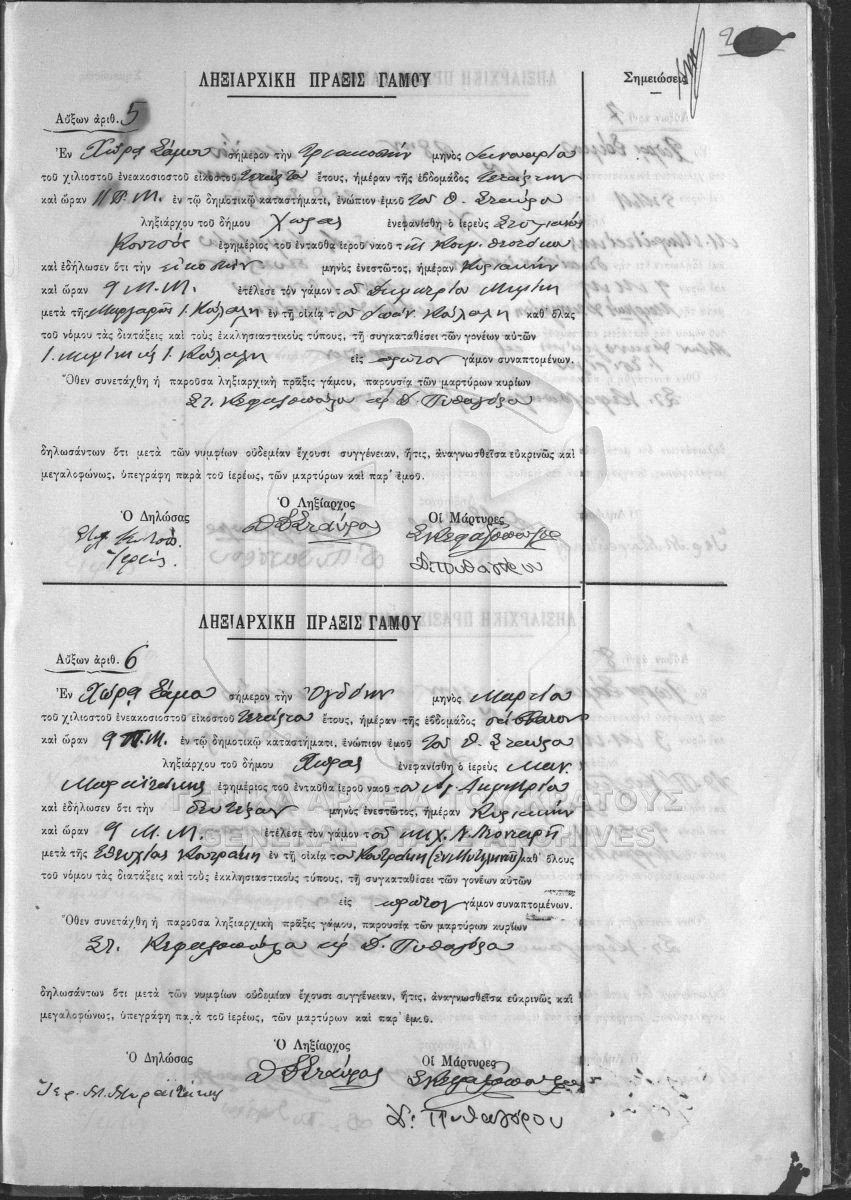 ΛΗΞΙΑΡΧΙΚΗ ΠΡΑΞΙΣ ΓΑΜΟΥ
Σημειώσεις
Αὔξων ἀριθ. 5
Ἐν Χώρᾳ Σάμου σήμερον τὴν τριακοστὴν μηνὸς Ἰανουαρίου
τοῦ χιλιοστοῦ ἐνεακοσιοστοῦ εἰκοστοῦ τετάρτου ἔτους, ἡμέραν τῆς ἑβδομάδος τετάρτην
καὶ ὥραν 11 Π.Μ. ἐν τῷ δημοτικῷ καταστήματι, ἐνώπιον ἐμοῦ τοῦ Θ. Σταύρου
ληξιάρχου τοῦ δήμου Χώρας ἐνεφανίσθη ὁ ἱερεὺς Στυλιανὸς
ἐφημέριος τοῦ ἐνταῦθα ἱεροῦ ναοῦ τῆς Κοιμ. Θεοτόκου
καὶ ἐδήλωσεν ὅτι τὴν εἰκοστὴν μηνὸς ἐνεστῶτος, ἡμέραν Κυριακὴν
καὶ ὥραν 9 Μ.Μ. ἐτέλεσε τὸν γάμον τοῦ Δημητρίου
μετὰ τῆς Ι. ἐν τῇ οἰκίᾳ τοῦ Ἰωάν. καθ' ὅλας
τοῦ νόμου τὰς διατάξεις καὶ τοὺς ἐκκλησιαστικοὺς τύπους, τῇ συγκαταθέσει τῶν γονέων αὐτῶν
εἰς πρῶτον γάμον συναπτομένων.
Ὅθεν συνετάχθη ἡ παροῦσα ληξιαρχικὴ πρᾶξις γάμου, παρουσίᾳ τῶν μαρτύρων κυρίων
Στ. Κεφαλοπούλου καὶ Δ. Πυθαγόρου
δηλωσάντων ὅτι μετὰ τῶν νυμφίων οὐδεμίαν ἔχουσι συγγένειαν, ἥτις, ἀναγνωσθεῖσα εὐκρινῶς καὶ
μεγαλοφώνως, ὑπεγράφη παρὰ τοῦ ἱερέως, τῶν μαρτύρων καὶ παρ' ἐμοῦ.
Ὁ Δηλώσας
Ὁ Ληξίαρχος
Οἱ Μάρτυρες
Θ Σταύρου
Σ Κεφαλόπουλος
Ἱερεύς
Δ. Πυθαγόρου
ΛΗΞΙΑΡΧΙΚΗ ΠΡΑΞΙΣ ΓΑΜΟΥ
Αὔξων ἀριθ. 6
Ἐν Χώρᾳ Σάμου σήμερον τὴν Ὀγδόην μηνὸς Μαρτίου
τοῦ χιλιοστοῦ ἐνεακοσιοστοῦ εἰκοστοῦ τετάρτου ἔτους, ἡμέραν τῆς ἑβδομάδος σάββατον
καὶ ὥραν 9 Π.Μ. ἐν τῷ δημοτικῷ καταστήματι, ἐνώπιον ἐμοῦ τοῦ Θ. Σταύρου
ληξιάρχου τοῦ δήμου Χώρας ἐνεφανίσθη ὁ ἱερεὺς Μαν.
ἐφημέριος τοῦ ἐνταῦθα ἱεροῦ ναοῦ τοῦ Ἁγ. Δημητρίου
καὶ ἐδήλωσεν ὅτι τὴν δευτέραν μηνὸς ἐνεστῶτος, ἡμέραν Κυριακὴν
καὶ ὥραν 9 Μ.Μ. ἐτέλεσε τὸν γάμον τοῦ Μιχ. Ν.
μετὰ τῆς Εὐτυχίας Κουτράκη ἐν τῇ οἰκίᾳ τοῦ Κουτράκη καθ' ὅλους
τοῦ νόμου τὰς διατάξεις καὶ τοὺς ἐκκλησιαστικοὺς τύπους, τῇ συγκαταθέσει τῶν γονέων αὐτῶν
εἰς πρῶτον γάμον συναπτομένων.
Ὅθεν συνετάχθη ἡ παροῦσα ληξιαρχικὴ πρᾶξις γάμου, παρουσίᾳ τῶν μαρτύρων κυρίων
Στ. Κεφαλοπούλου καὶ Δ. Πυθαγόρου
δηλωσάντων ὅτι μετὰ τῶν νυμφίων οὐδεμίαν ἔχουσι συγγένειαν, ἥτις, ἀναγνωσθεῖσα εὐκρινῶς καὶ
μεγαλοφώνως, ὑπεγράφη παρὰ τοῦ ἱερέως, τῶν μαρτύρων καὶ παρ' ἐμοῦ.
Ὁ Δηλώσας
Ὁ Ληξίαρχος
Οἱ Μάρτυρες
Ἱερ. Μ.
Θ Σταύρου
Σ Κεφαλόπουλος
Δ. Πυθαγόρου